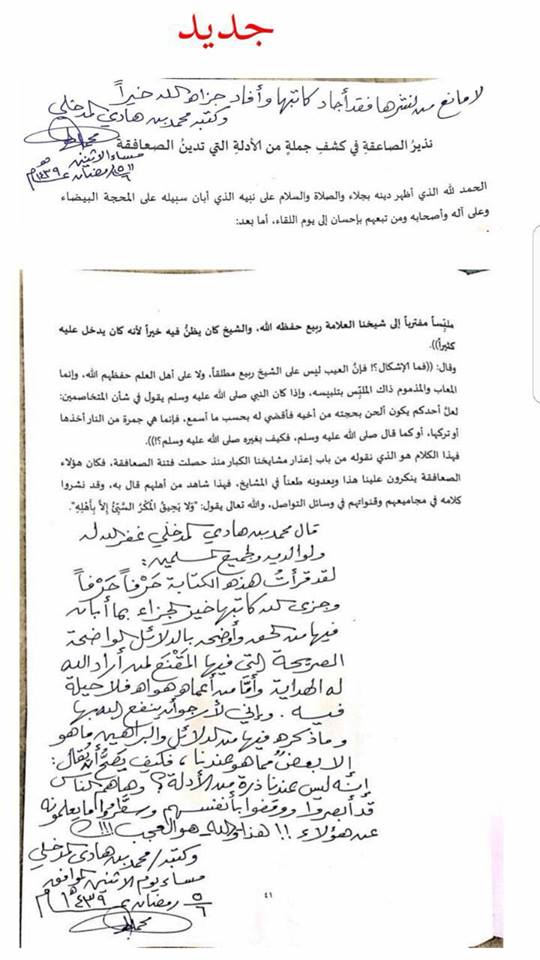 جديد
لا مانع من نشرها فقد أجاد كاتبها وأفاد جزاه الله خيراً
وكتبه محمد بن هادي المدخلي
نذيرُ الصاعقةِ في كشفِ جملةٍ من الأدلةِ التي تدينُ الصعافقة
مساء الاثنين
رمضان ١٤٣٩هـ
الحمد لله الذي أظهر دينه بجلاء والصلاة والسلام على نبيه الذي أبان سبيله على المحجة البيضاء
وعلى آله وأصحابه ومن تبعهم بإحسان إلى يوم اللقاء، أما بعد:
ملبِّساً مفترياً إلى شيخنا العلامة ربيع حفظه الله، والشيخ كان يظنُّ فيه خيراً لأنه كان يدخل عليه
كثيراً)).
وقال: ((فما الإشكال؟! فإنَّ العيب ليس على الشيخ ربيع مطلقاً، ولا على أهل العلم حفظهم الله، وإنما
المعاب والمذموم ذاك الملبِّس بتلبيسه، وإذا كان النبي صلى الله عليه وسلم يقول في شأن المتخاصمين:
لعلَّ أحدكم يكون ألحن بحجته من أخيه فأقضي له بحسب ما أسمع، فإنما هي جمرة من النار أخذها
أو تركها، أو كما قال صلى الله عليه وسلم، فكيف بغيره صلى الله عليه وسلم؟!)).
فهذا الكلام هو الذي نقوله من باب إعذار مشايخنا الكبار منذ حصلت فتنة الصعافقة، فكان هؤلاء
الصعافقة ينكرون علينا هذا ويعدونه طعناً في المشايخ، فهذا شاهد من أهلهم قال به، وقد نشروا
كلامه في مجاميعهم وقنواتهم في وسائل التواصل، والله تعالى يقول: "وَلَا يَحِيقُ الْمَكْرُ السَّيِّئُ إِلَّا بِأَهْلِهِ".
قال محمد بن هادي المدخلي غفر الله له
ولوالديه ولجميع المسلمين:
لقد قرأتُ هذه الكتابة حَرْفاً حَرْفاً
وجزى الله كاتبها خير الجزاء بما أبانه
فيها من الحق وأوضحه بالدلائل الواضحة
الصريحة التي فيها المَقْنَع لمن أراد الله
له الهداية وأمَّا من أعماه هواه فلا حيلة
فيه. وإني لأرجو أن ينفع الله بها
وما ذكره فيها من الدلائل والبراهين ما هو
إلا بعضٌ مما هو عندنا، فكيف يصحُّ أن يُقال:
إنَّه ليس عندنا ذرة من الأدلة؟ وهاهم الناس
قد أبصروا ووقفوا بأنفسهم وسطَّروا ما يعلمونه
عن هؤلاء!! هذا والله هو العجب!!!
وكتبه/ محمد بن هادي المدخلي
مساء يوم الاثنين الموافق
٥/٦ رمضان ١٤٣٩هـ
٤١